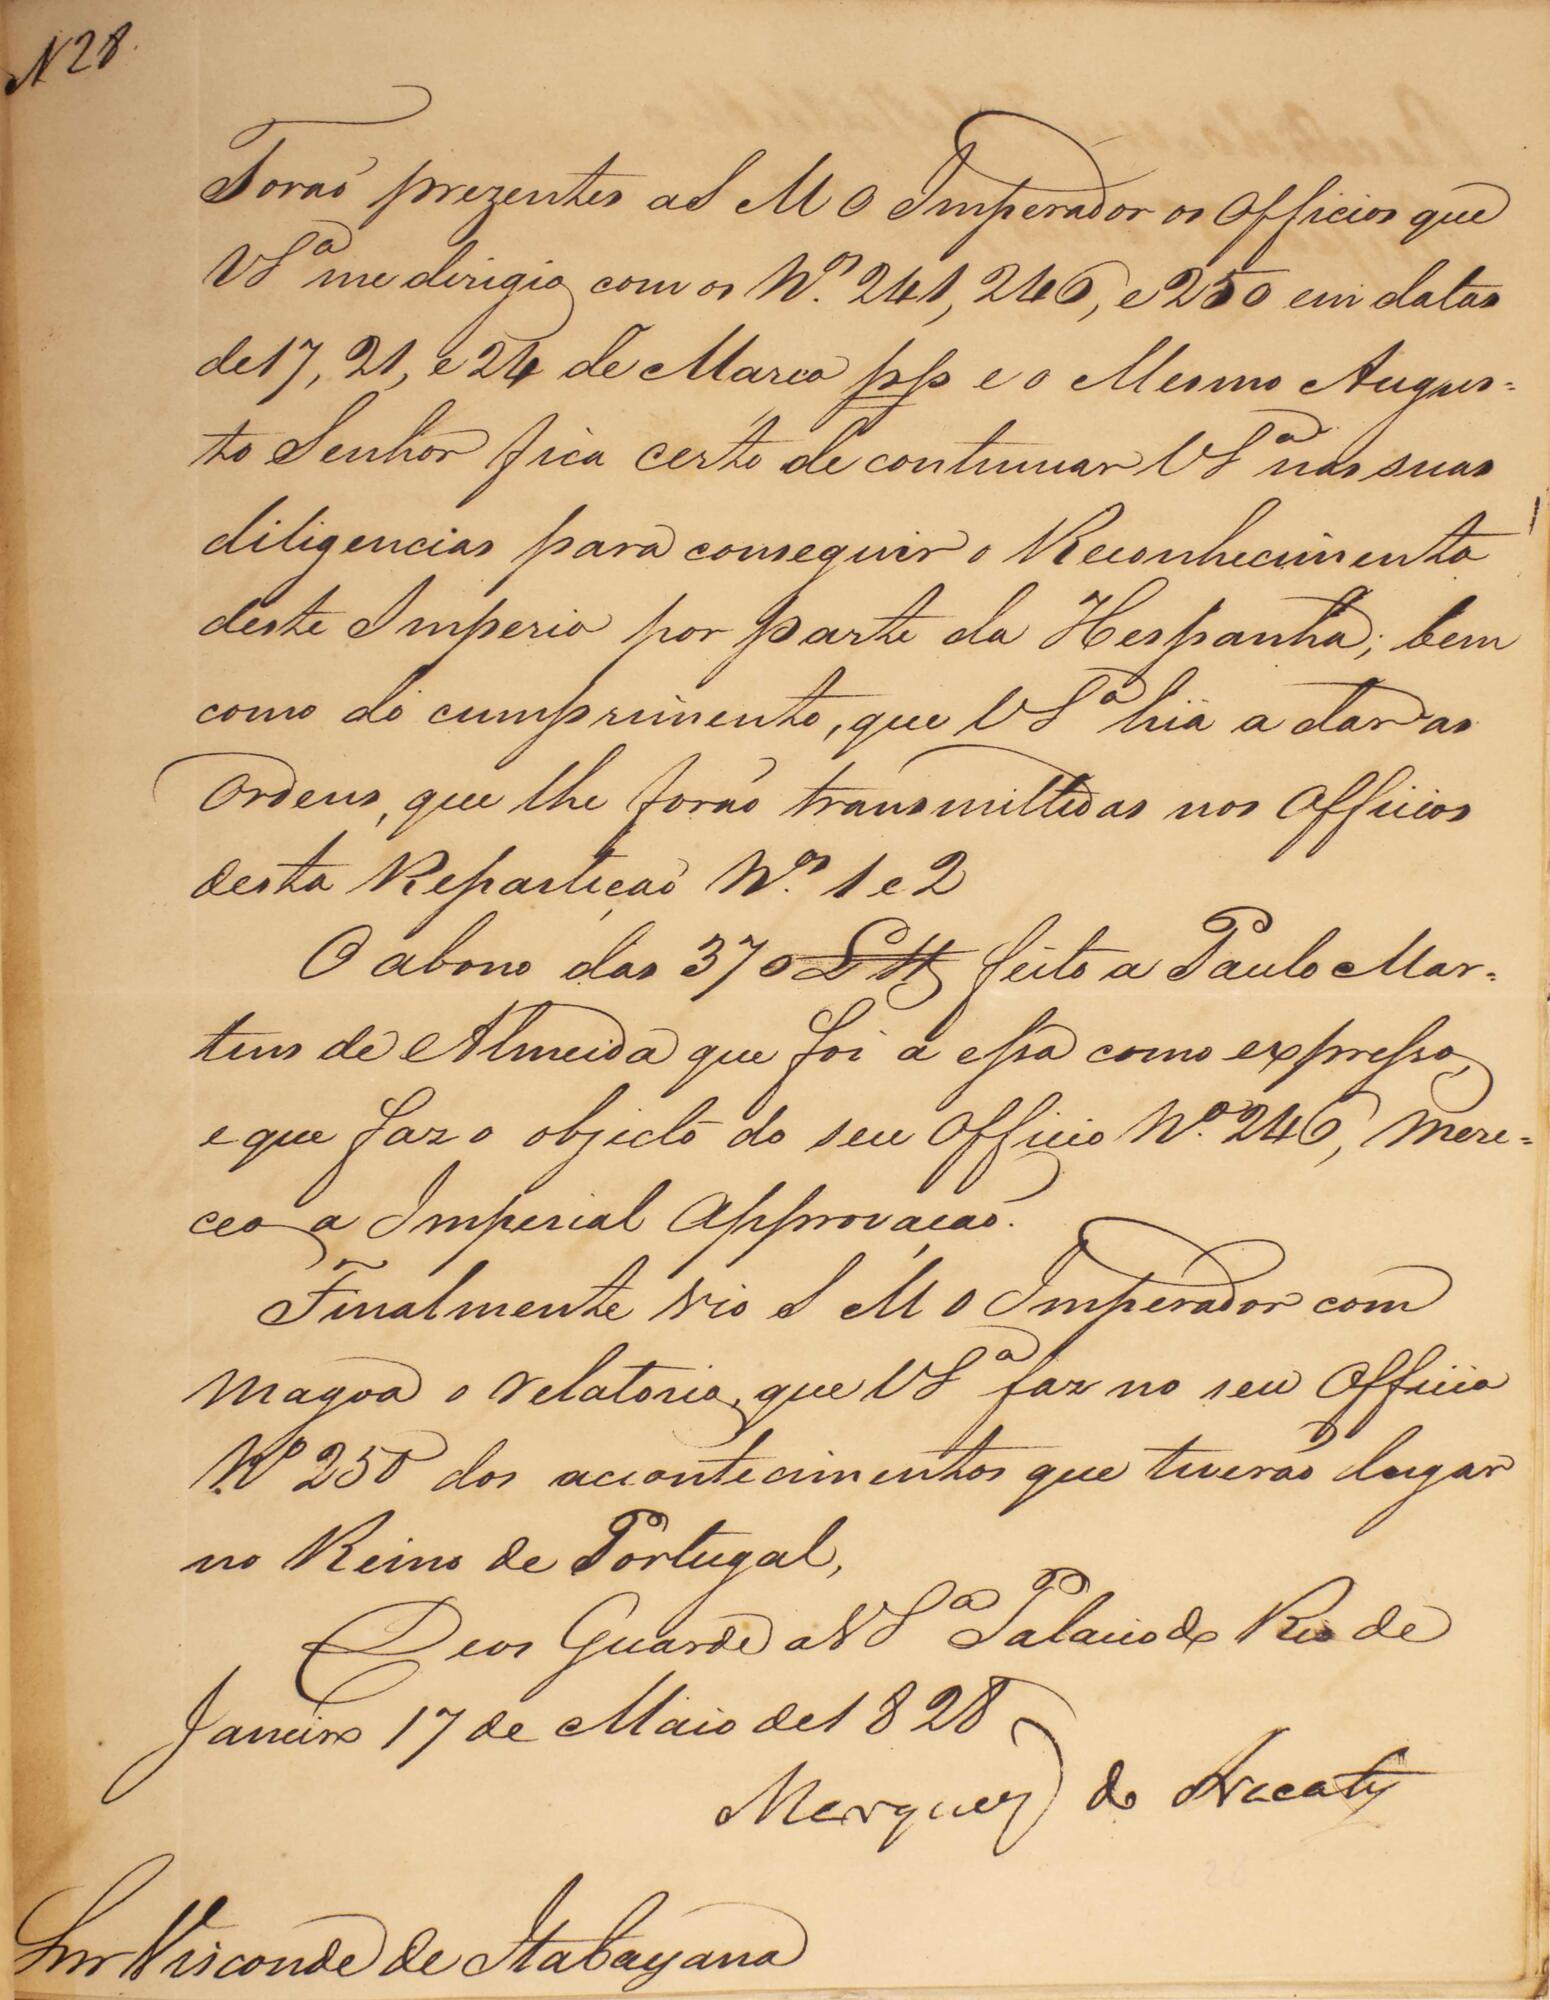 N 28.
Forão prezentes a S M O Imperador os Officios que
VSª me dirigio com os Nos. 241, 246, e 250 em datas
de 17, 21, e 24 de Março pp e o Mesmo Augus=
to Senhor fica certo de continuar VSª nas suas
diligencias para conseguir o Reconhecimento
deste Imperio por parte da Hespanha; bem
como do cumprimento, que VSª hia a dar as
Ordens, que lhe forão transmittidas nos Officios
desta Repartição Nos. 1 e 2
O abono das 370 feito a Paulo Mar=
tins de Almeida que foi a essa como expresso,
e que faz o objecto do seu Officio Nº 246, Mere=
ceo a Imperial Approvação.
Finalmente vio S M O Imperador com
magoa o relatorio, que VSª faz no seu Officio
Nº 250 dos acontecimentos que tiverão lugar
no Reino de Portugal,
Deos Guarde a VSª Palacio do Rio de
Janeiro 17 de Maio de 1828
Marquez do Aracaty
Snr Visconde de Itabayana